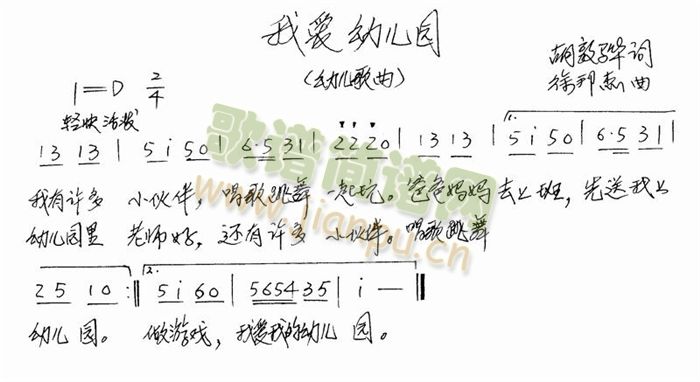 我爱幼儿园
(幼儿歌曲)
胡敦骅词
徐邦杰曲
1=D 2/4
轻快活泼
13 13 | 5 i 50 | 6·5 31 | 22 20 | 13 13 | 1. 5 i 50 | 6·5 31 |
我有许多 小伙伴, 唱歌跳舞 一起玩。爸爸妈妈 去上班, 先送我上
幼儿园里 老师好, 还有许多 小伙伴。唱歌跳舞
25 10 :‖ 2. 5 i 60 | 5654 35 | i — ‖
幼儿园。 做游戏, 我爱我的幼儿 园。
歌谱简谱网
www.jianpu.cn